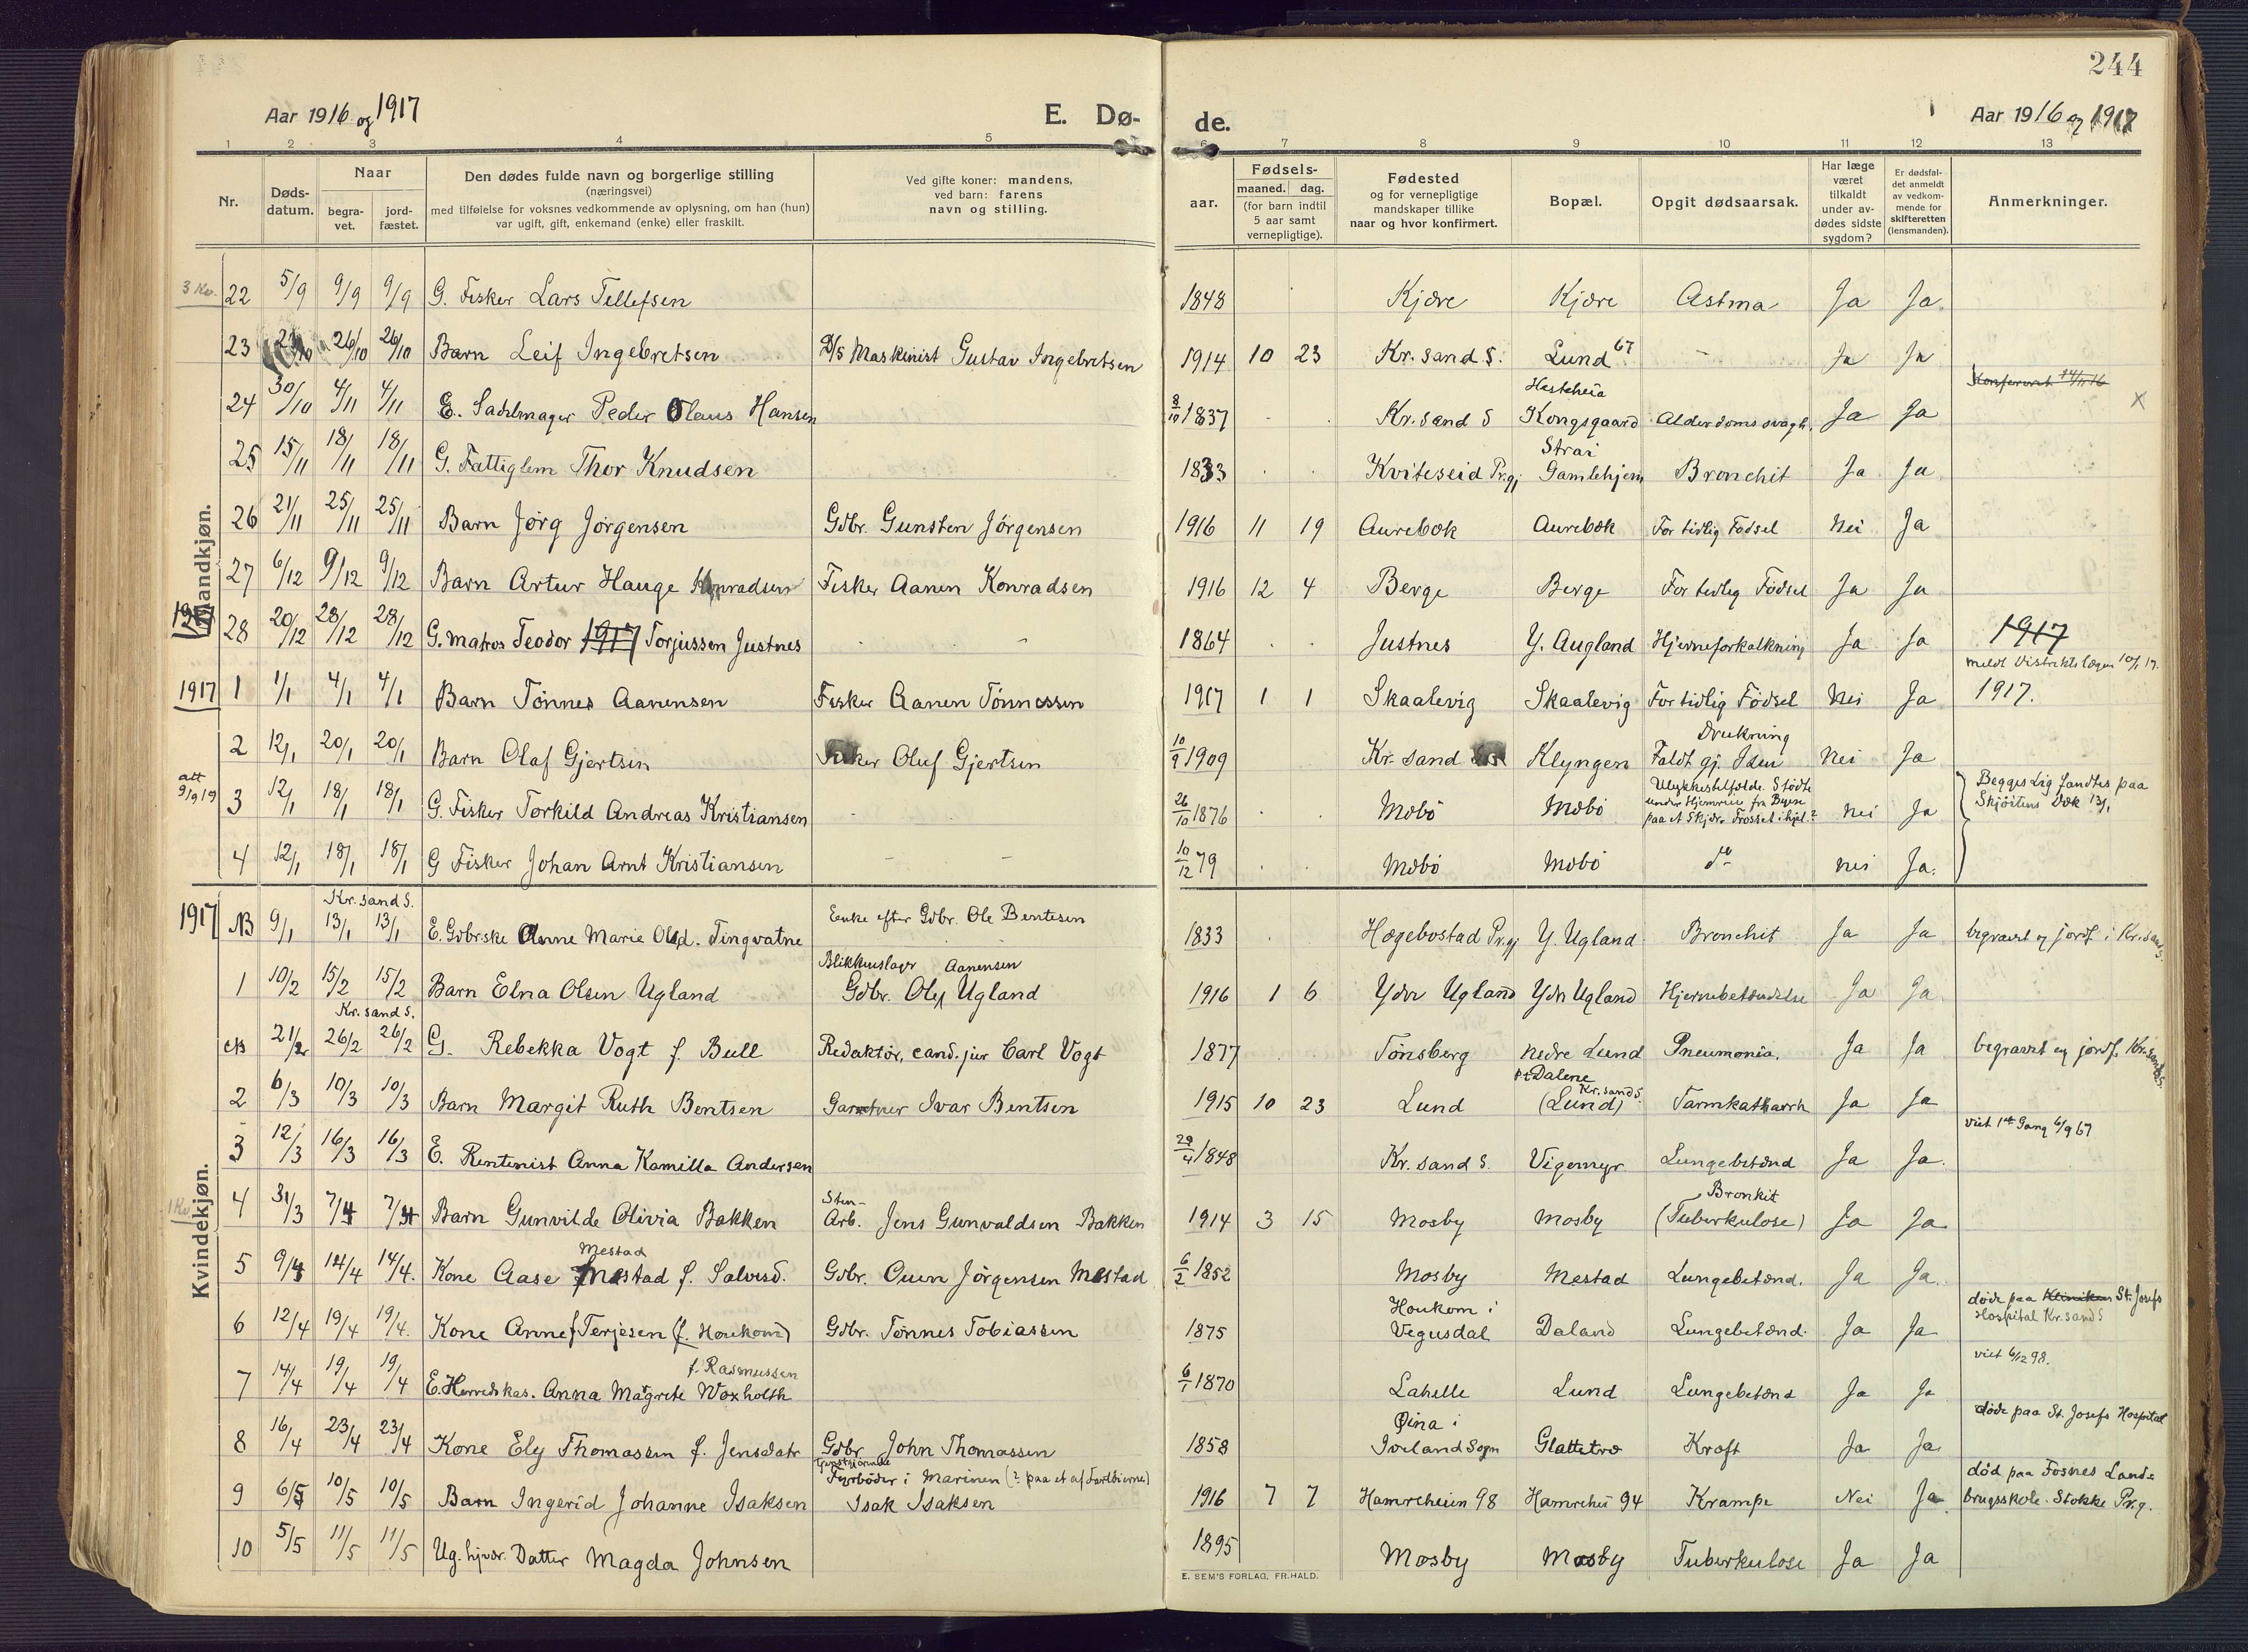 244
Aar 1916 og 1917 E. Dø- de. Aar 1916 og 1917
1 2 3 4 5 6 7 8 9 10 11 12 13
Nr. Døds-datum. Naar begra-vet. jord-fæstet. Den dødes fulde navn og borgerlige stilling (næringsvei) med tilføielse for voksnes vedkommende av oplysning, om han (hun) var ugift, gift, enkemand (enke) eller fraskilt. Ved gifte koner: mandens, ved barn: farens navn og stilling. Fødsels- aar. maaned. dag. (for barn indtil 5 aar samt vernepligtige). Fødested og for vernepligtige mandskaper tillike naar og hvor konfirmert. Bopæl. Opgit dødsaarsak. Har læge været tilkaldt under av-dødes sidste sygdom? Er dødsfal-det anmeldt av vedkom-mende for skifteretten (lensmanden). Anmerkninger.
Mandkjøn.
3 Kv. 22 5/9 9/9 9/9 G. Fisker Lars Tellefsen 1848 Kjære Kjære Astma Ja Ja
23 26/10 26/10 Barn Leif Ingebretsen D/S Maskinist Gustav Ingebretsen 1914 10 23 Kr.sand S. Lund 67 - Ja Ja
24 30/10 4/11 4/11 E. Sadelmager Peder Olaus Hansen 8/10 1837 Kr.sand S Hesteheia Kongsgaard Alderdomssvagh. Ja Ja
25 15/11 18/11 18/11 G. Fattiglem Thor Knudsen 1833 Kviteseid Pr.gj Strai Gamlehjem Bronchit Ja Ja
26 21/11 25/11 25/11 Barn Jørg Jørgensen Gdbr. Gunsten Jørgensen 1916 11 19 Aurebæk Aurebæk For tidlig Fødsel Nei Ja
27 6/12 9/12 9/12 Barn Artur Hauge Konradsen Fisker Aanen Konradsen 1916 12 4 Berge Berge For tidlig Fødsel Ja Ja
28 20/12 28/12 28/12 G. Matros Teodor 1917 Torjussen Justnes 1864 Justnes Y. Augland Hjerneforkalkning Ja Ja 1917
meldt Distriktslægen 10/1 17.
1917 1 1/1 4/1 4/1 Barn Tønnes Aanensen Fisker Aanen Tønnessen 1917 1 1 Skaalevig Skaalevig For tidlig Fødsel Nei Ja 1917.
2 12/1 20/1 20/1 Barn Olaf Gjertsen Fisker Oluf Gjertsen 10/9 1909 Kr.sand Klyngen Drukning Faldt gj. Isen Nei Ja
att 9/9 19 3 12/1 18/1 18/1 G. Fisker Torkild Andreas Kristiansen 26/10 1876 Mæbø Mæbø Ulykkestilfælde. Stødte under Hjemreise fra Byen paa et Skjær. Frosset ihjel? Nei Ja Begges Lig fandtes paa Skjøitens Dæk 13/1
4 12/1 18/1 18/1 G Fisker Johan Arnt Kristiansen - - 10/12 79 Mæbø Mæbø do Nei Ja.
Kvindekjøn.
1917 NB 9/1 Kr.sand S. 13/1 13/1 E. Gdbrske Anne Marie Olsd. Tingvatne Enke efter Gdbr. Ole Bentesen 1833 Hægebostad Pr.gj Y. Ugland Bronchit Ja Ja begravet og jordf. i Kr.sand S.
1 10/2 15/2 15/2 Barn Elna Olsen Ugland Blikkenslager Aanensen Gdbr. Ole Ugland 1916 1 6 Ydre Ugland Ydre Ugland Hjernebetændelse Ja Ja
NB 21/2 Kr.sand S. 26/2 26/2 G. Rebekka Vogt f. Bull Redaktør, cand. jur Carl Vogt 1877 Tønsberg Nedre Lund Pneumonia. Ja Ja begravet og jordf. Kr.sand S.
2 6/3 10/3 10/3 Barn Margit Ruth Bentsen Gartner Ivar Bentsen 1915 10 23 Lund pt Dalene Kr.sand S. (Lund) Tarmkatharrh Ja Ja
3 12/3 16/3 16/3 E. Rentenist Anna Kamilla Andersen 29/4 1848 Kr.sand S. Vigemyr Lungebetænd Ja Ja. viet 1ste Gang 6/9 67
1 Kv 4 31/3 7/4 7/4 Barn Gunvilde Olivia Bakken Sten-Arb. Jens Gunvaldsen Bakken 1914 3 15 Mosby Mosby Bronkit (Tuberkulose) Ja Ja
5 9/4 14/4 14/4. Kone Aase Mestad f. Salvesd. Gdbr. Ouen Jørgensen Mestad 6/2 1852 Mosby Mestad Lungebetænd. Ja Ja.
6 12/4 19/4 19/4. Kone Anne Terjesen (f. Houkom) Gdbr. Tønnes Tobiassen 1875 Houkom i Vegusdal Daland Lungebetænd. Ja Ja døde paa Kliniken St. Josefs Hospital Kr.sand S
7 14/4 19/4 19/4 E. Herredskas. Anna Magrete Woxholth f. Rasmussen 6/1 1870 Lahelle Lund Lungebetænd Ja Ja viet 6/12 98.
8 16/4 23/4 23/4 Kone Ely Thomassen f. Jensdatr Gdbr John Thomassen 1858 Øina i Iveland Sogn Glattetræ Kræft Ja Ja døde paa St. Josefs Hospital
9 6/5 10/5 10/5 Barn Ingerid Johanne Isaksen Fyrbøder i Marinen (? paa et af Fartøierne) Isak Isaksen 1916 7 7 Hamreheien 98 Hamrehei 94 Krampe Nei Ja død paa Fosnes Landbrugsskole. Stokke Pr.g.
10 5/5 11/5 11/5 Ug. hjvær. Datter Magda Johnsen 1895 Mosby Mosby Tuberkulose Ja Ja
E. SEM'S FORLAG, FR.HALD.